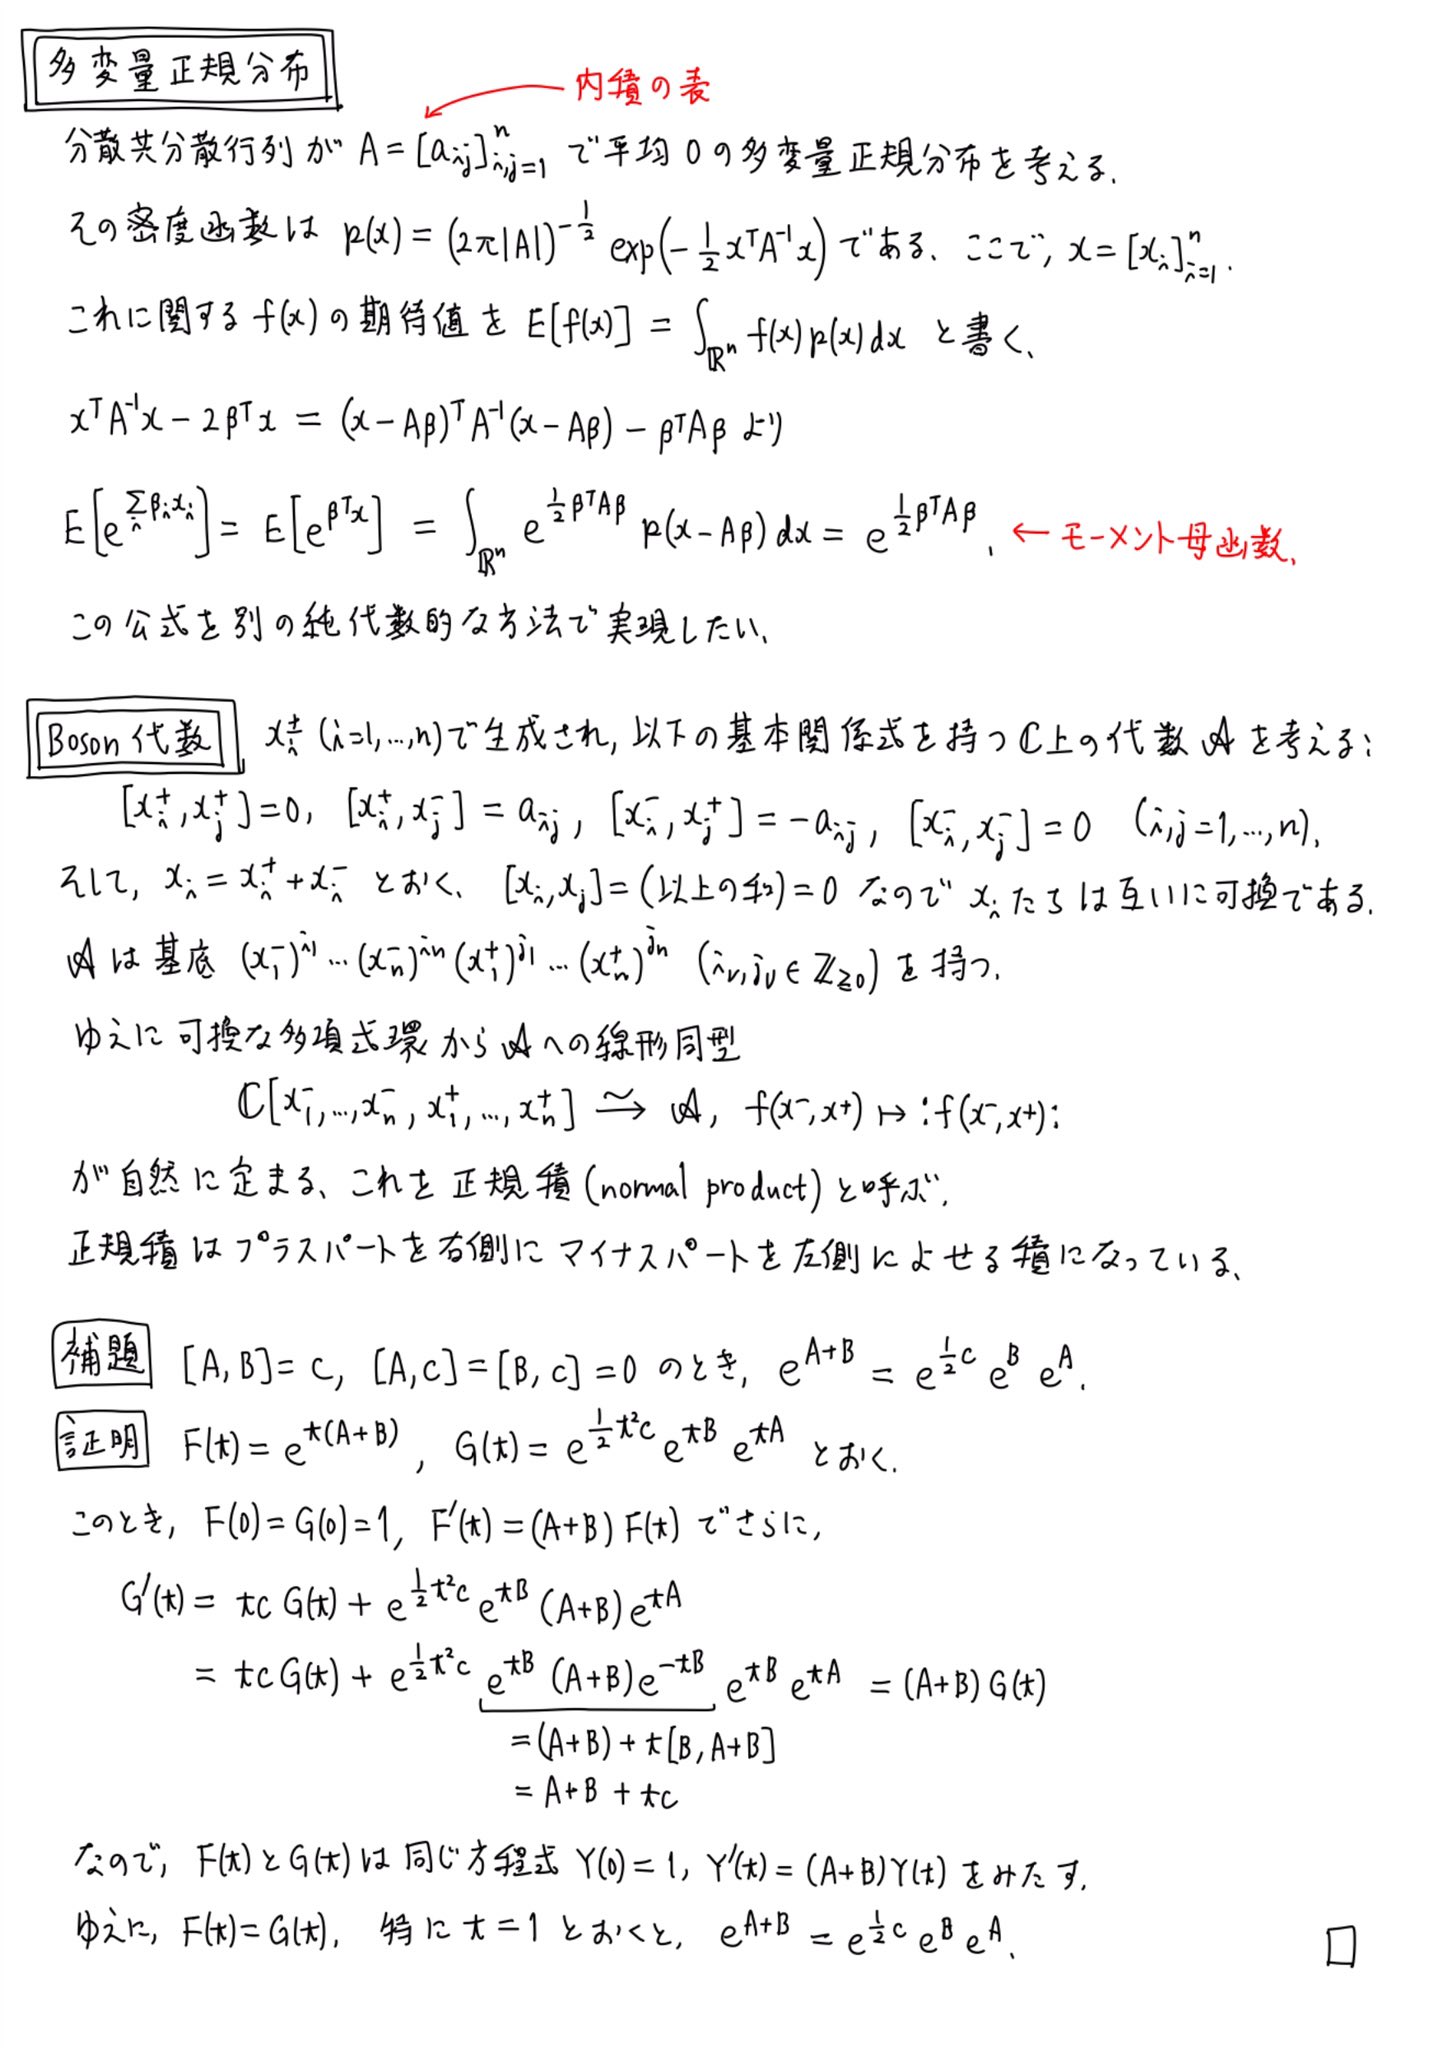 多変量正規分布
内積の表
分散共分散行列が A = [a_ij]^n_{i,j=1} で平均 0 の多変量正規分布を考える.
その密度函数は p(x) = (2π|A|)^{-1/2} exp(-1/2 x^T A^{-1} x) である. ここで, x = [x_i]^n_{i=1}.
これに関する f(x) の期待値を E[f(x)] = ∫_{ℝ^n} f(x) p(x) dx と書く.
x^T A^{-1} x - 2β^T x = (x - Aβ)^T A^{-1} (x - Aβ) - β^T Aβ より
E[e^{Σ_i β_i x_i}] = E[e^{β^T x}] = ∫_{ℝ^n} e^{1/2 β^T Aβ} p(x - Aβ) dx = e^{1/2 β^T Aβ}. ← モーメント母函数.
この公式を別の純代数的な方法で実現したい.
Boson代数 x_i^± (i=1,…,n)で生成され, 以下の基本関係式を持つ ℂ上の代数 𝔸 を考える:
[x_i^+, x_j^+] = 0, [x_i^+, x_j^-] = a_ij, [x_i^-, x_j^+] = -a_ij, [x_i^-, x_j^-] = 0 (i,j=1,…,n).
そして, x_i = x_i^+ + x_i^- とおく. [x_i, x_j] = (以上の和) = 0 なので x_i たちは互いに可換である.
𝔸 は基底 (x_1^-)^{i_1} … (x_n^-)^{i_n} (x_1^+)^{j_1} … (x_n^+)^{j_n} (i_ν, j_ν ∈ ℤ_{≧0}) を持つ.
ゆえに可換な多項式環から 𝔸 への線形同型
ℂ[x_1^-,…,x_n^-, x_1^+,…,x_n^+] ⥲ 𝔸, f(x^-, x^+) ↦ :f(x^-, x^+):
が自然に定まる. これを正規積(normal product)と呼ぶ.
正規積はプラスパートを右側にマイナスパートを左側によせる積になっている.
補題 [A, B] = c, [A, c] = [B, c] = 0 のとき, e^{A+B} = e^{1/2 c} e^B e^A.
証明 F(t) = e^{t(A+B)}, G(t) = e^{1/2 t^2 c} e^{tB} e^{tA} とおく.
このとき, F(0) = G(0) = 1, F'(t) = (A+B) F(t) でさらに,
G'(t) = tc G(t) + e^{1/2 t^2 c} e^{tB} (A+B) e^{tA}
= tc G(t) + e^{1/2 t^2 c} e^{tB} (A+B) e^{-tB} e^{tB} e^{tA} = (A+B) G(t)
= (A+B) + t[B, A+B]
= A+B + tc
なので, F(t) と G(t) は同じ方程式 Y(0) = 1, Y'(t) = (A+B) Y(t) をみたす.
ゆえに, F(t) = G(t). 特に t = 1 とおくと, e^{A+B} = e^{1/2 c} e^B e^A. □